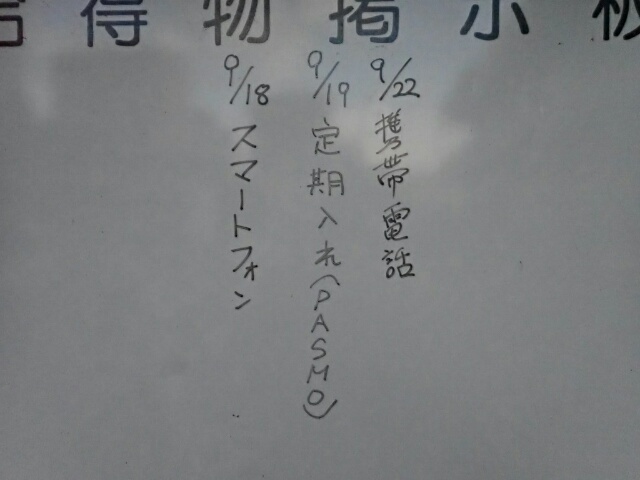 拾得物掲示板
9/22 携帯電話
9/19 定期入れ(PASMO)
9/18 スマートフォン